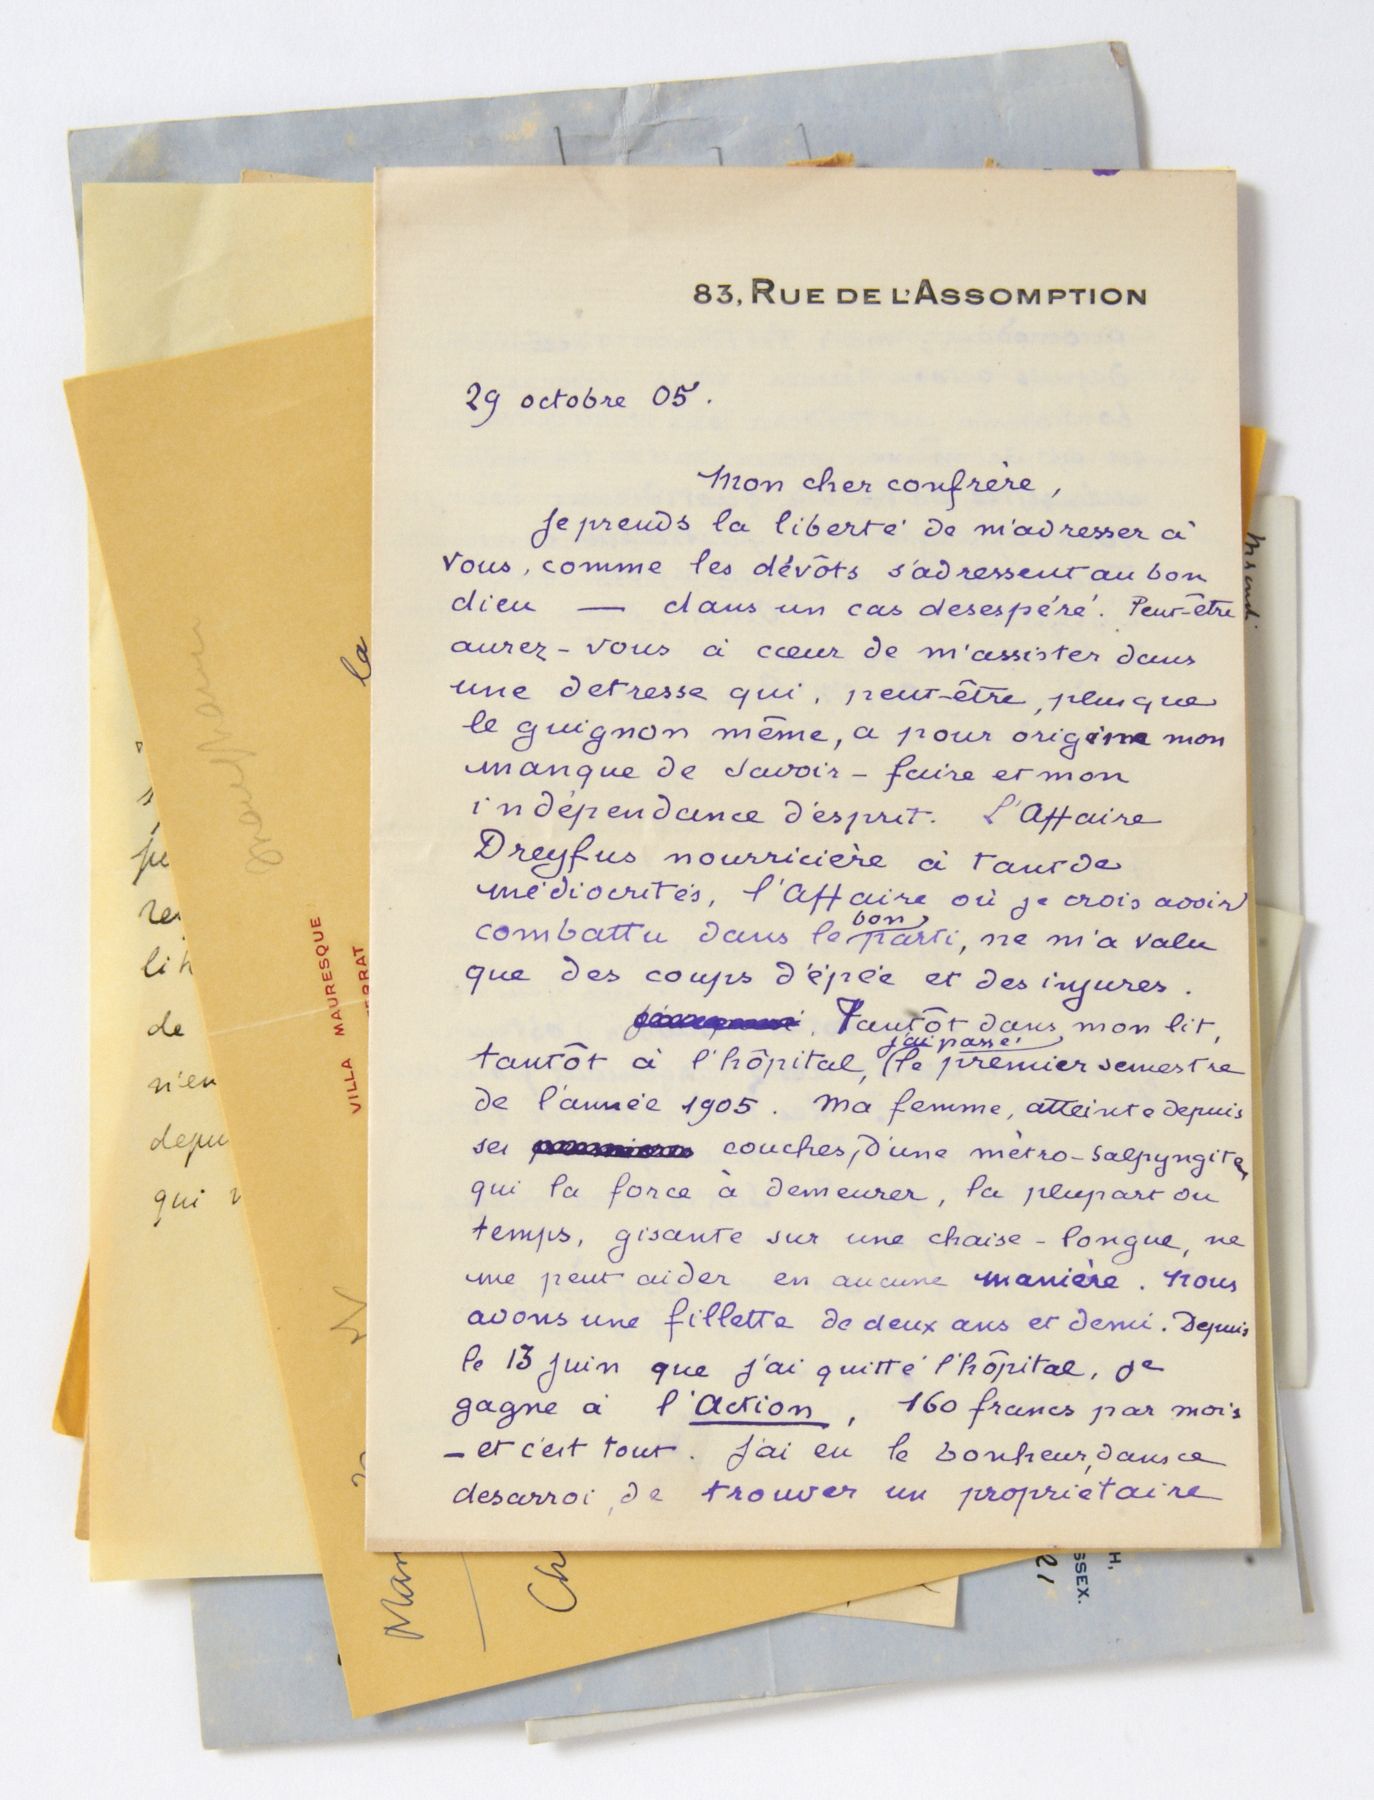 83, RUE DE L'ASSOMPTION
29 octobre 05.
Mon cher confrère,
Je prends la liberté de m'adresser à
vous, comme les dévôts s'adressent au bon
dieu — dans un cas desespéré. Peut-être
aurez-vous à cœur de m'assister dans
une detresse qui, peut-être, plus que
le guignon même, a pour origine mon
manque de savoir-faire et mon
indépendance d'esprit. L'Affaire
Dreyfus nourricière à tant de
médiocrités, l'Affaire où je crois avoir
combattu dans le bon parti, ne m'a valu
que des coups d'épée et des injures.
Tantôt dans mon lit,
tantôt à l'hôpital, j'ai passé le premier semestre
de l'année 1905. Ma femme, atteinte depuis
ses couches, d'une métro-salpyngite,
qui la force à demeurer, la plupart du
temps, gisante sur une chaise-longue, ne
me peut aider en aucune manière. Nous
avons une fillette de deux ans et demi. Depuis
le 13 juin que j'ai quitté l'hôpital, je
gagne à l'Action, 160 francs par mois
— et c'est tout. J'ai eu le bonheur, dans ce
desarroi, de trouver un propriétaire
la
VILLA MAURESQUE
RRAT
de
n'en
depu
qui
Man
Ch
H,
SSEX.